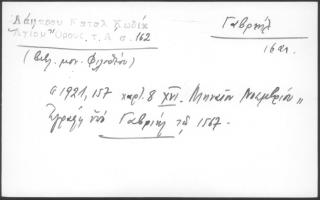 Λάμπρου Καταλ Κωδίκ
Ἁγίου Ὄρους, τ. Α σ. 162
Γαβριήλ
16 αι.
(Βιβ. μον. Φιλοθέου)
α 1921, 157 χαρτ. 8 XVI. Μηναῖον Νοεμβρίου "
Ἐγράφη ὑπὸ Γαβριὴλ τῷ 1567.